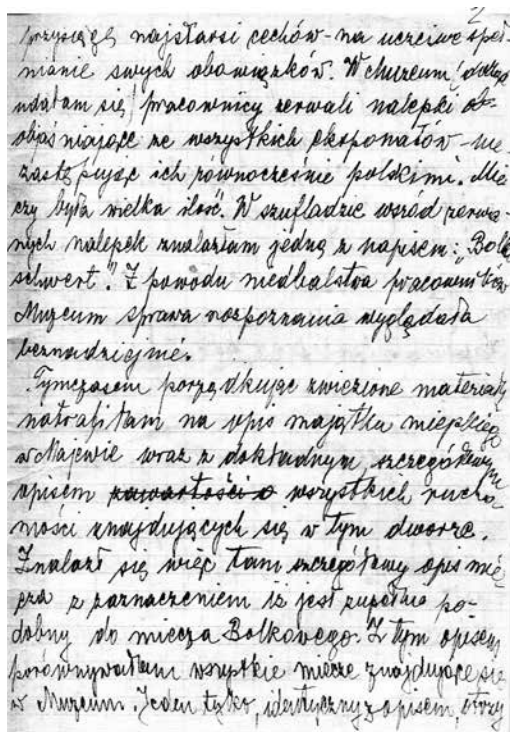 2
przysięgę najstarsi cechów - na uczciwe speł-
nianie swych obowiązków. W Muzeum dokąd
udałam się pracownicy zerwali nalepki ob-
objaśniające ze wszystkich eksponatów - nie
zastępując ich równocześnie polskimi. Mie-
czy była wielka ilość. W szufladzie wśród zerwa-
nych nalepek znalazłam jedną z napisem: "Bolk
schwert". Z powodu niedbalstwa pracowników
Muzeum sprawa rozpoznania wyglądała
beznadziejnie.
Tymczasem porządkując zwiezione materiały
natrafiłam na opis majątku miejskiego
w Majewie wraz z dokładnym, szczegółowym
opisem zawartości wszystkich rucho-
mości znajdujących się w tym dworze.
Znalazł się więc tam szczegółowy opis mie-
cza z zaznaczeniem iż jest zupełnie po-
dobny do miecza Bolkowego. Z tym opisem
porównywałam wszystkie miecze znajdujące się
w Muzeum. Jeden tylko, identyczny z opisem,